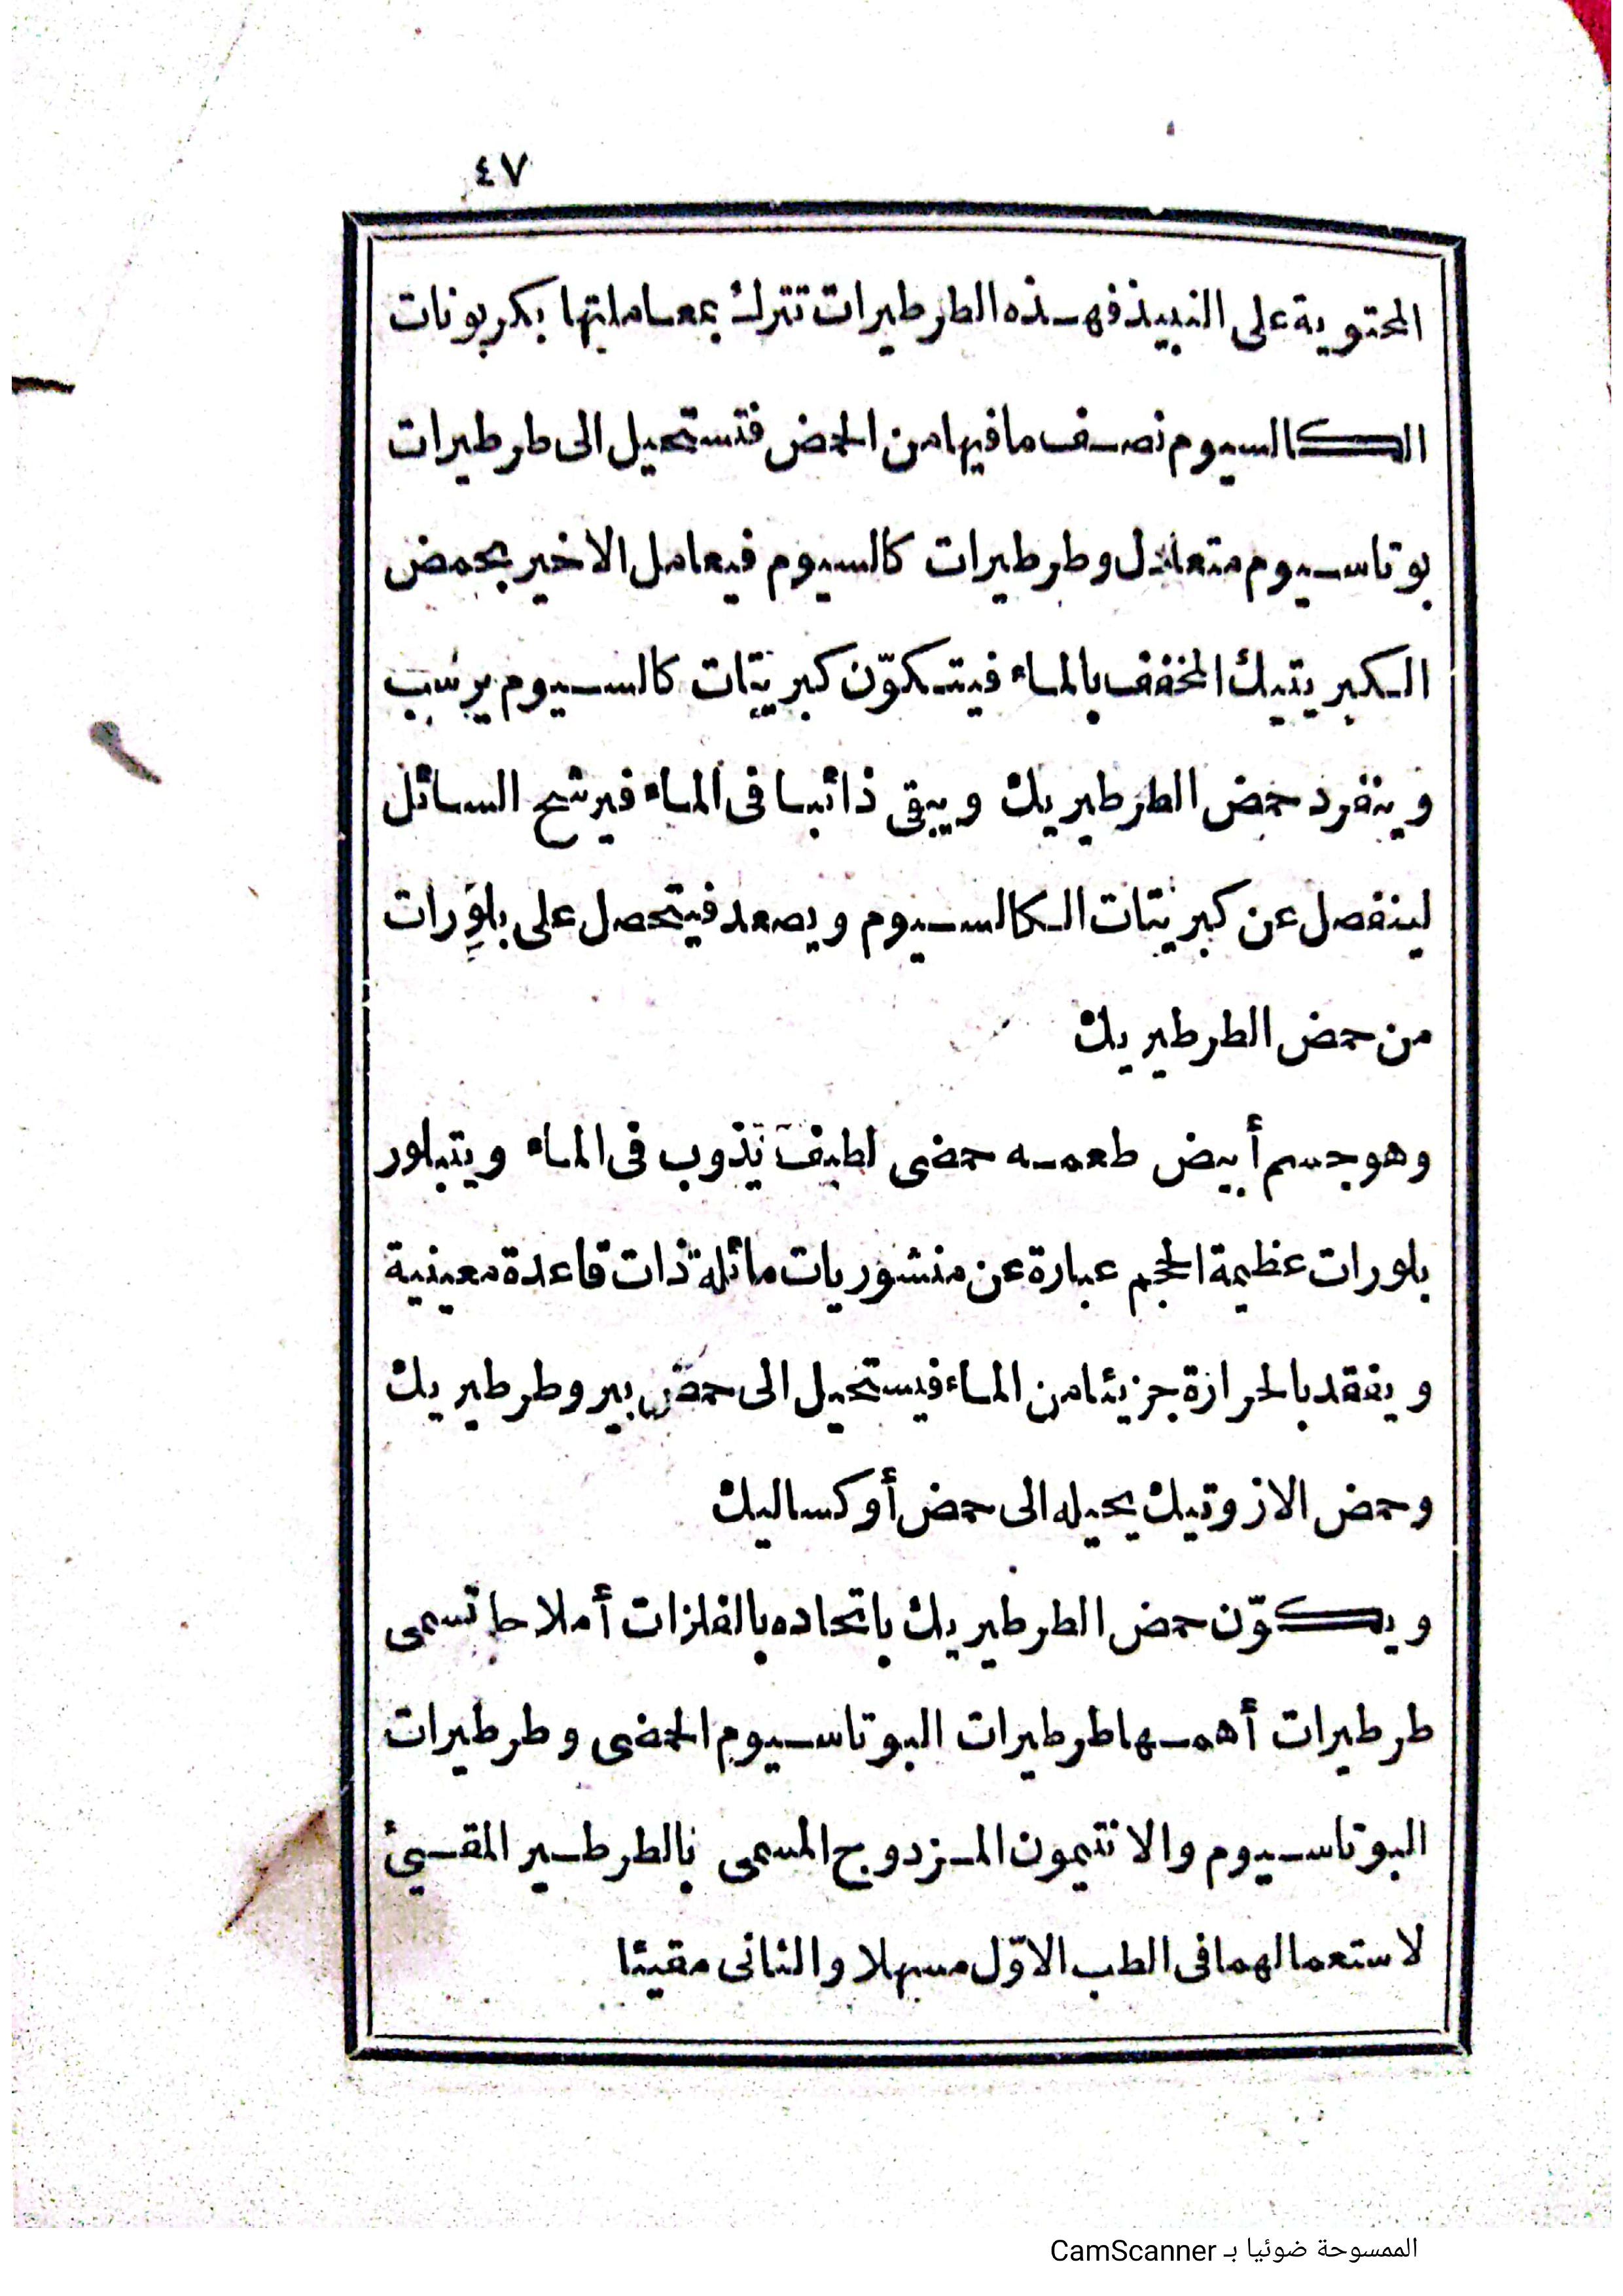 ٤٧
المحتوية على النبيذ فهذه الطرطيرات تترك بمعاملتها بكربونات
الكالسيوم نصف ما فيها من الحمض فتستحيل الى طرطيرات
بوتاسيوم متعادل وطرطيرات كالسيوم فيعامل الاخير بحمض
الكبريتيك المخفف بالماء فيتكوّن كبريتات كالسيوم يرسب
وينفرد حمض الطرطيريك ويبقى ذائبا فى الماء فيرشح السائل
لينفصل عن كبريتات الكالسيوم ويصعد فيتحصل على بلورات
من حمض الطرطيريك
وهو جسم أبيض طعمه حمضى لطيف يذوب فى الماء ويتبلور
بلورات عظيمة الحجم عبارة عن منشوريات مائلة ذات قاعدة معينية
ويفقد بالحرارة جزيئا من الماء فيستحيل الى حمض بيروطرطيريك
وحمض الازوتيك يحيله الى حمض أوكساليك
ويكوّن حمض الطرطيريك باتحاده بالفلزات أملاحا تسمى
طرطيرات أهمها طرطيرات البوتاسيوم الحمضى وطرطيرات
البوتاسيوم والانتيمون المزدوج المسمى بالطرطير المقيئ
لاستعمالهما فى الطب الاوّل مسهلا والثانى مقيئا
الممسوحة ضوئيا بـ CamScanner